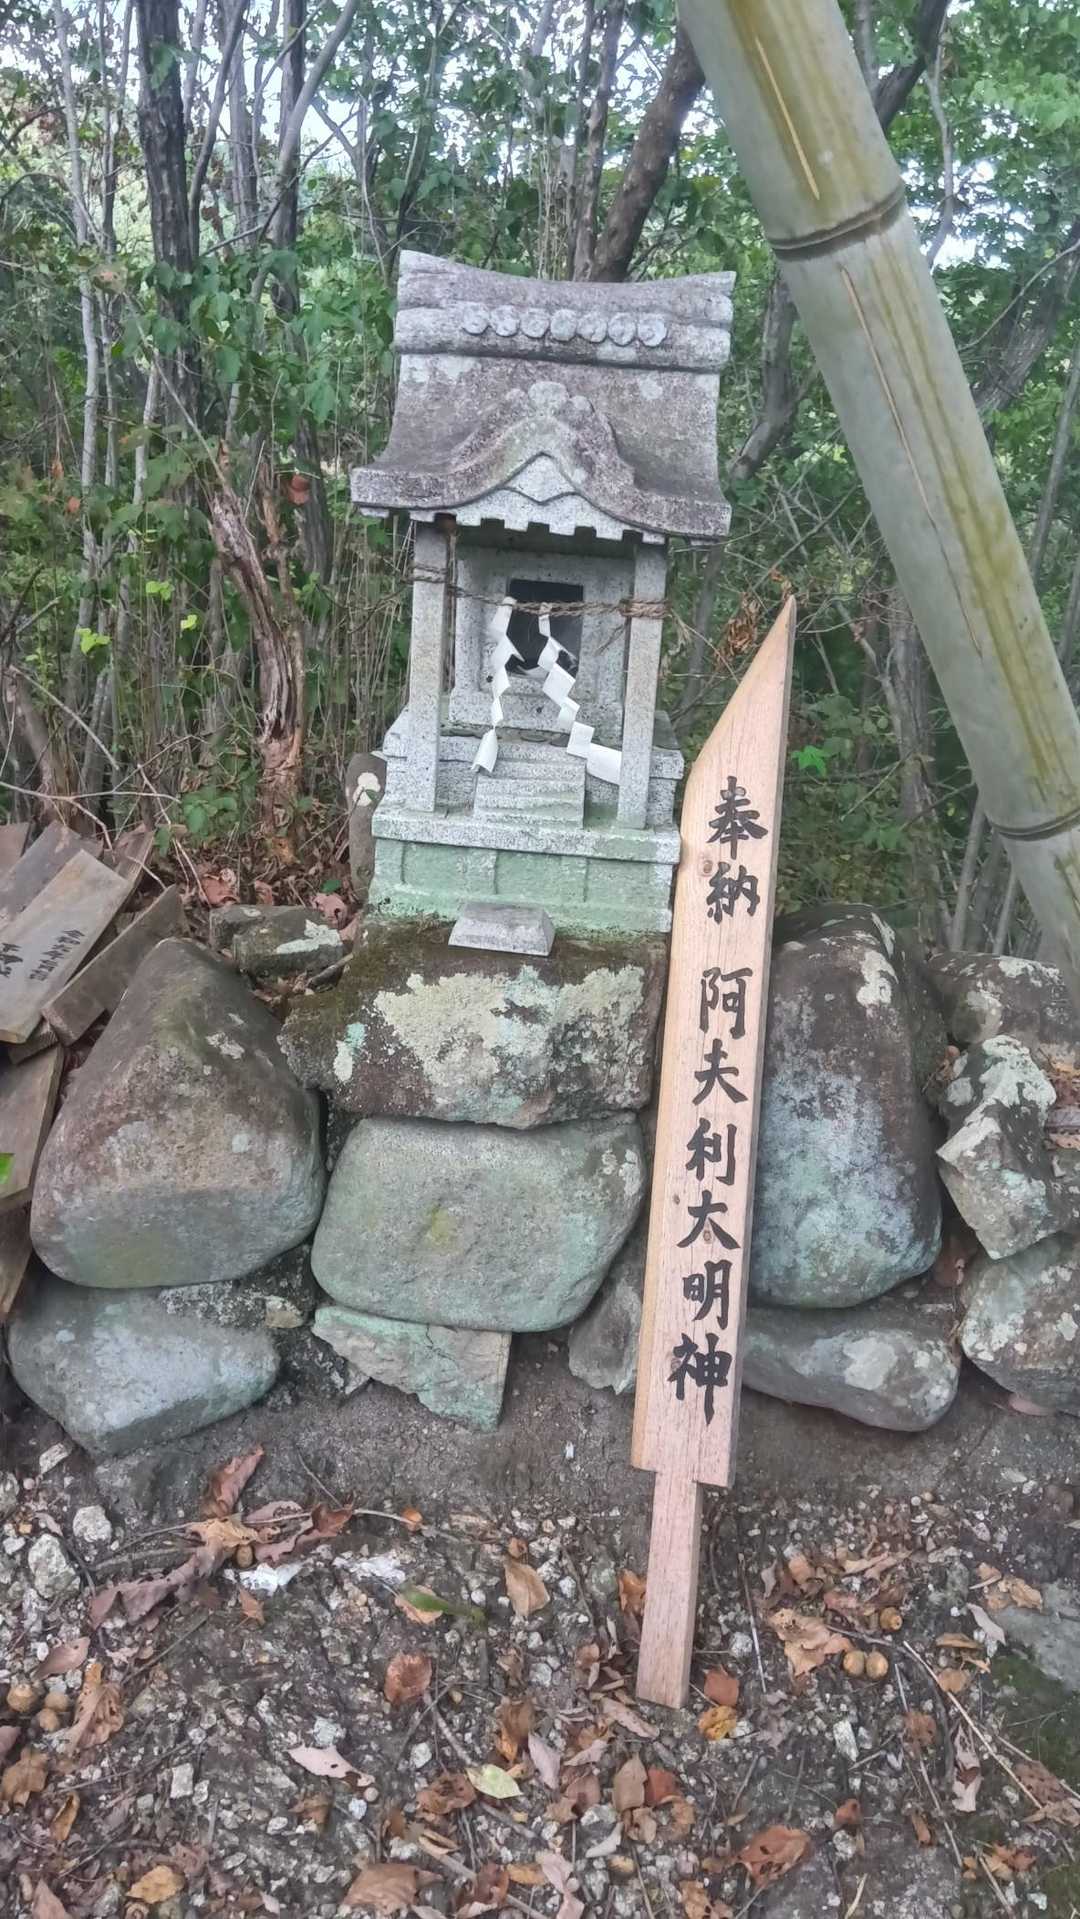 奉納 阿夫利大明神